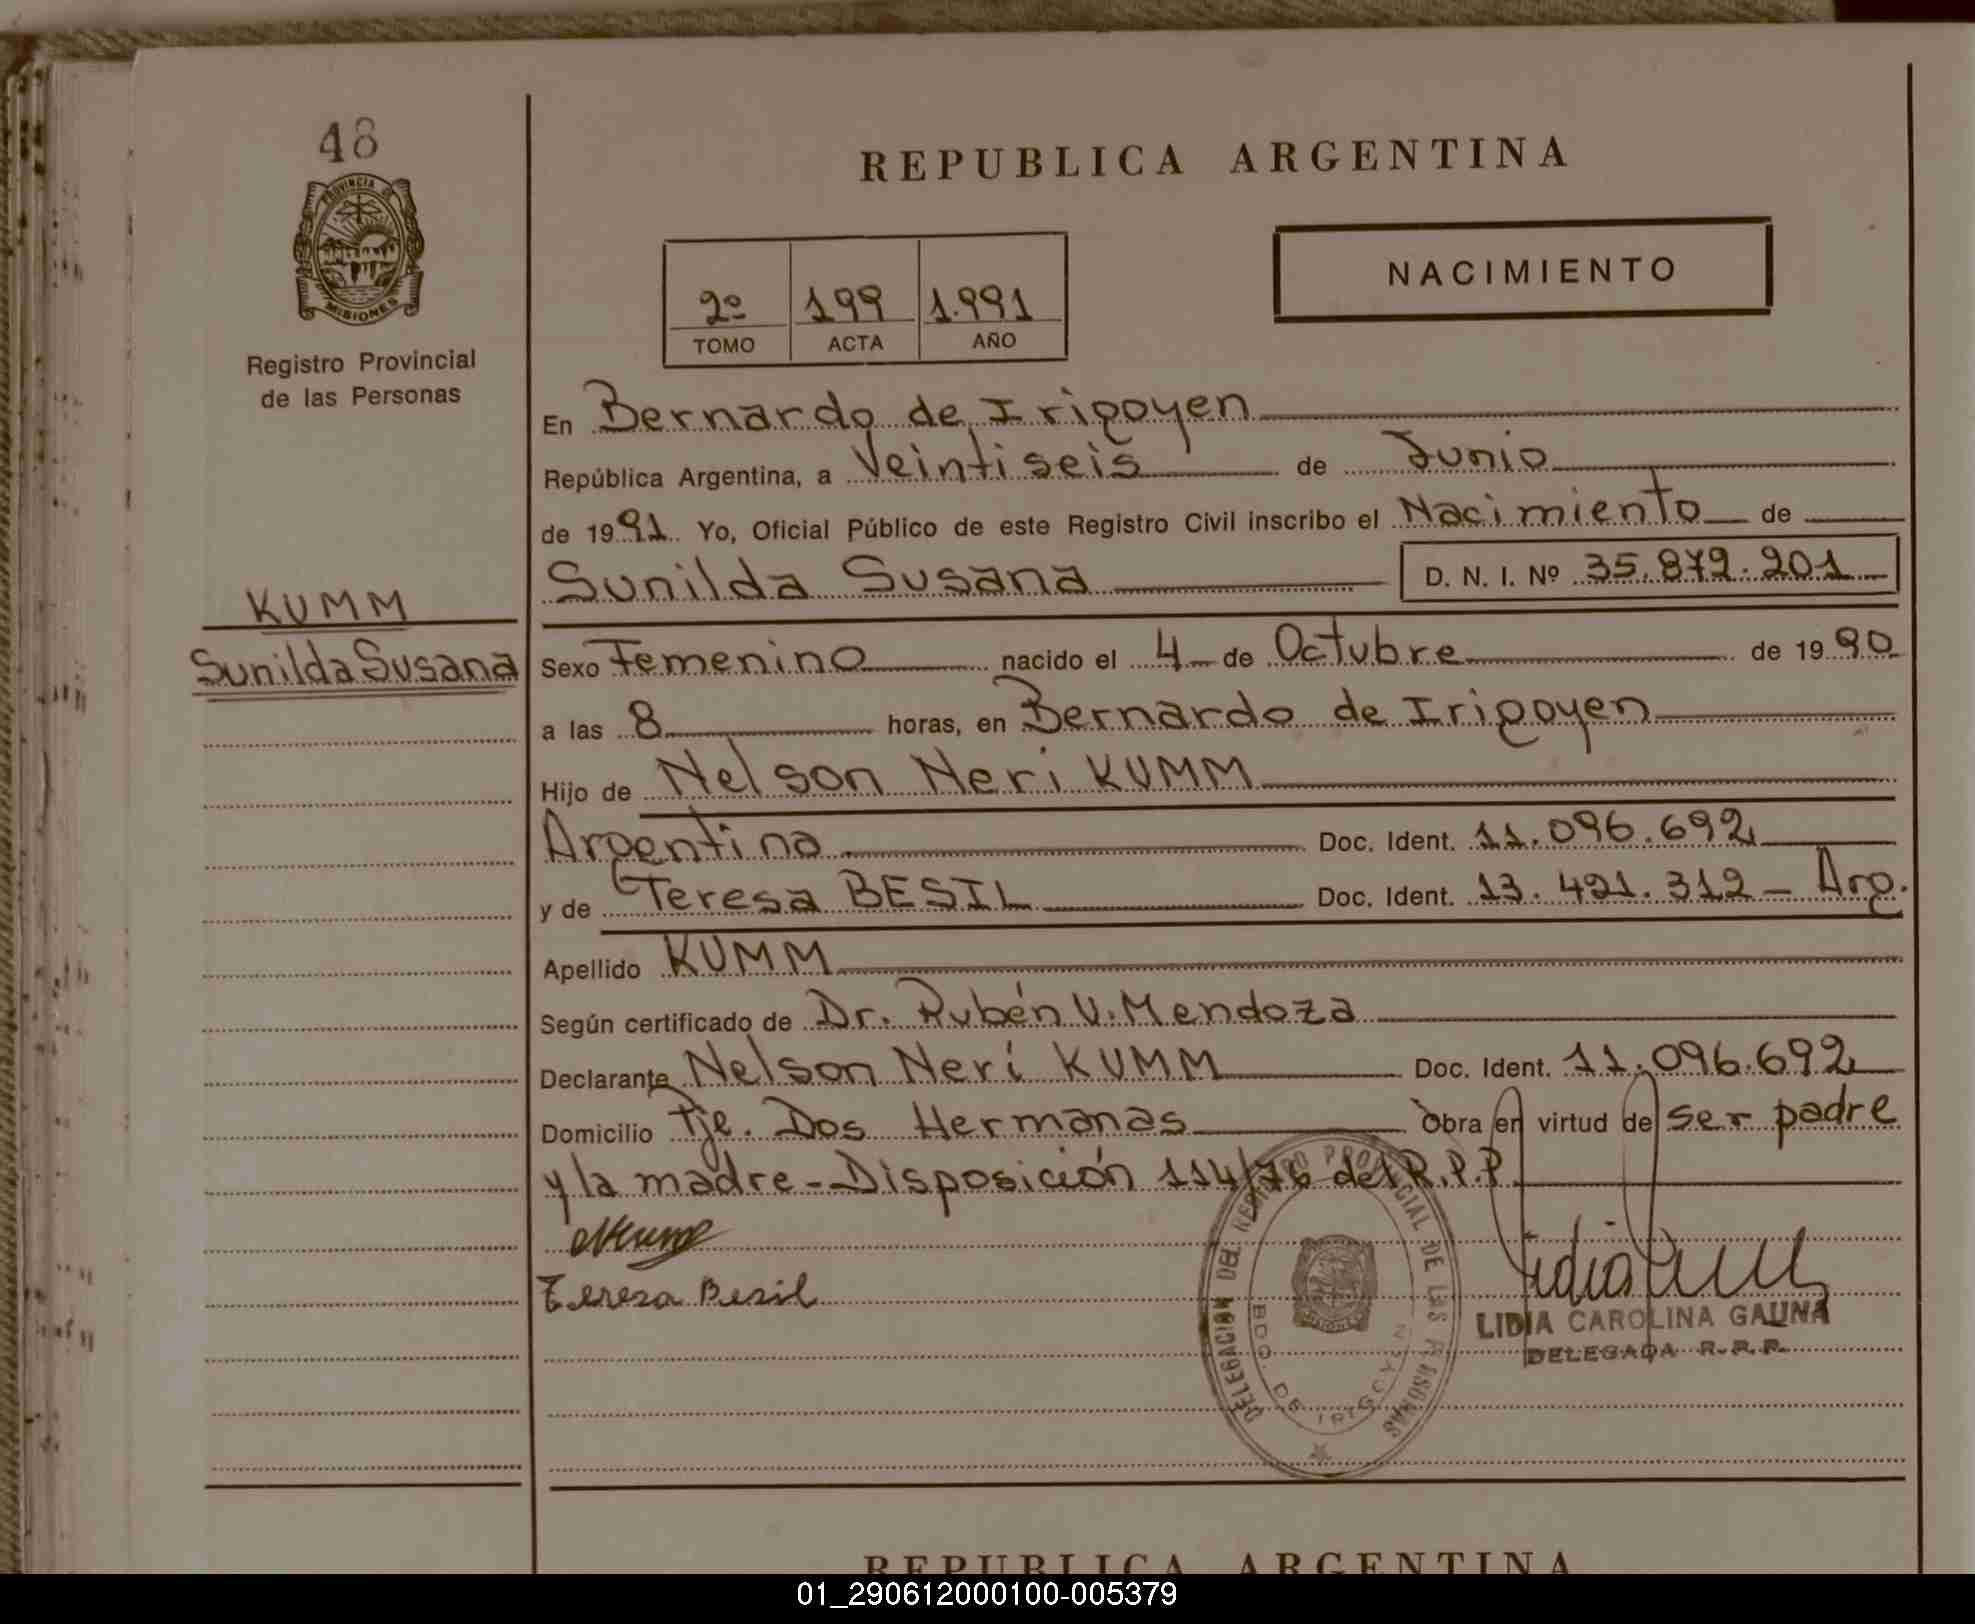 48
PROVINCIA DE
MISIONES
Registro Provincial
de las Personas
KUMM
Sunilda Susana
REPUBLICA ARGENTINA
NACIMIENTO
2º 199 1.991
TOMO ACTA AÑO
En Bernardo de Irigoyen
República Argentina, a Veintiseis de Junio
de 1991 Yo, Oficial Público de este Registro Civil inscribo el Nacimiento de
Sunilda Susana D. N. I. Nº 35.872.201
Sexo Femenino nacido el 4 de Octubre de 1990
a las 8 horas, en Bernardo de Irigoyen
Hijo de Nelson Neri KUMM
Argentina Doc. Ident. 11.096.692
y de Teresa BESIL Doc. Ident. 13.421.312 - Arg.
Apellido KUMM
Según certificado de Dr. Rubén V. Mendoza
Declarante Nelson Neri KUMM Doc. Ident. 11.096.692
Domicilio Pje. Dos Hermanas Obra en virtud de ser padre
y la madre - Disposición 114/76 del R.P.P.
NKumm
Teresa Besil
DELEGACION DEL REGISTRO PROVINCIAL DE LAS PERSONAS
BDO. DE IRIGOYEN
LIDIA CAROLINA GAUNA
DELEGADA R.R.P.
REPUBLICA ARGENTINA
01_290612000100-005379